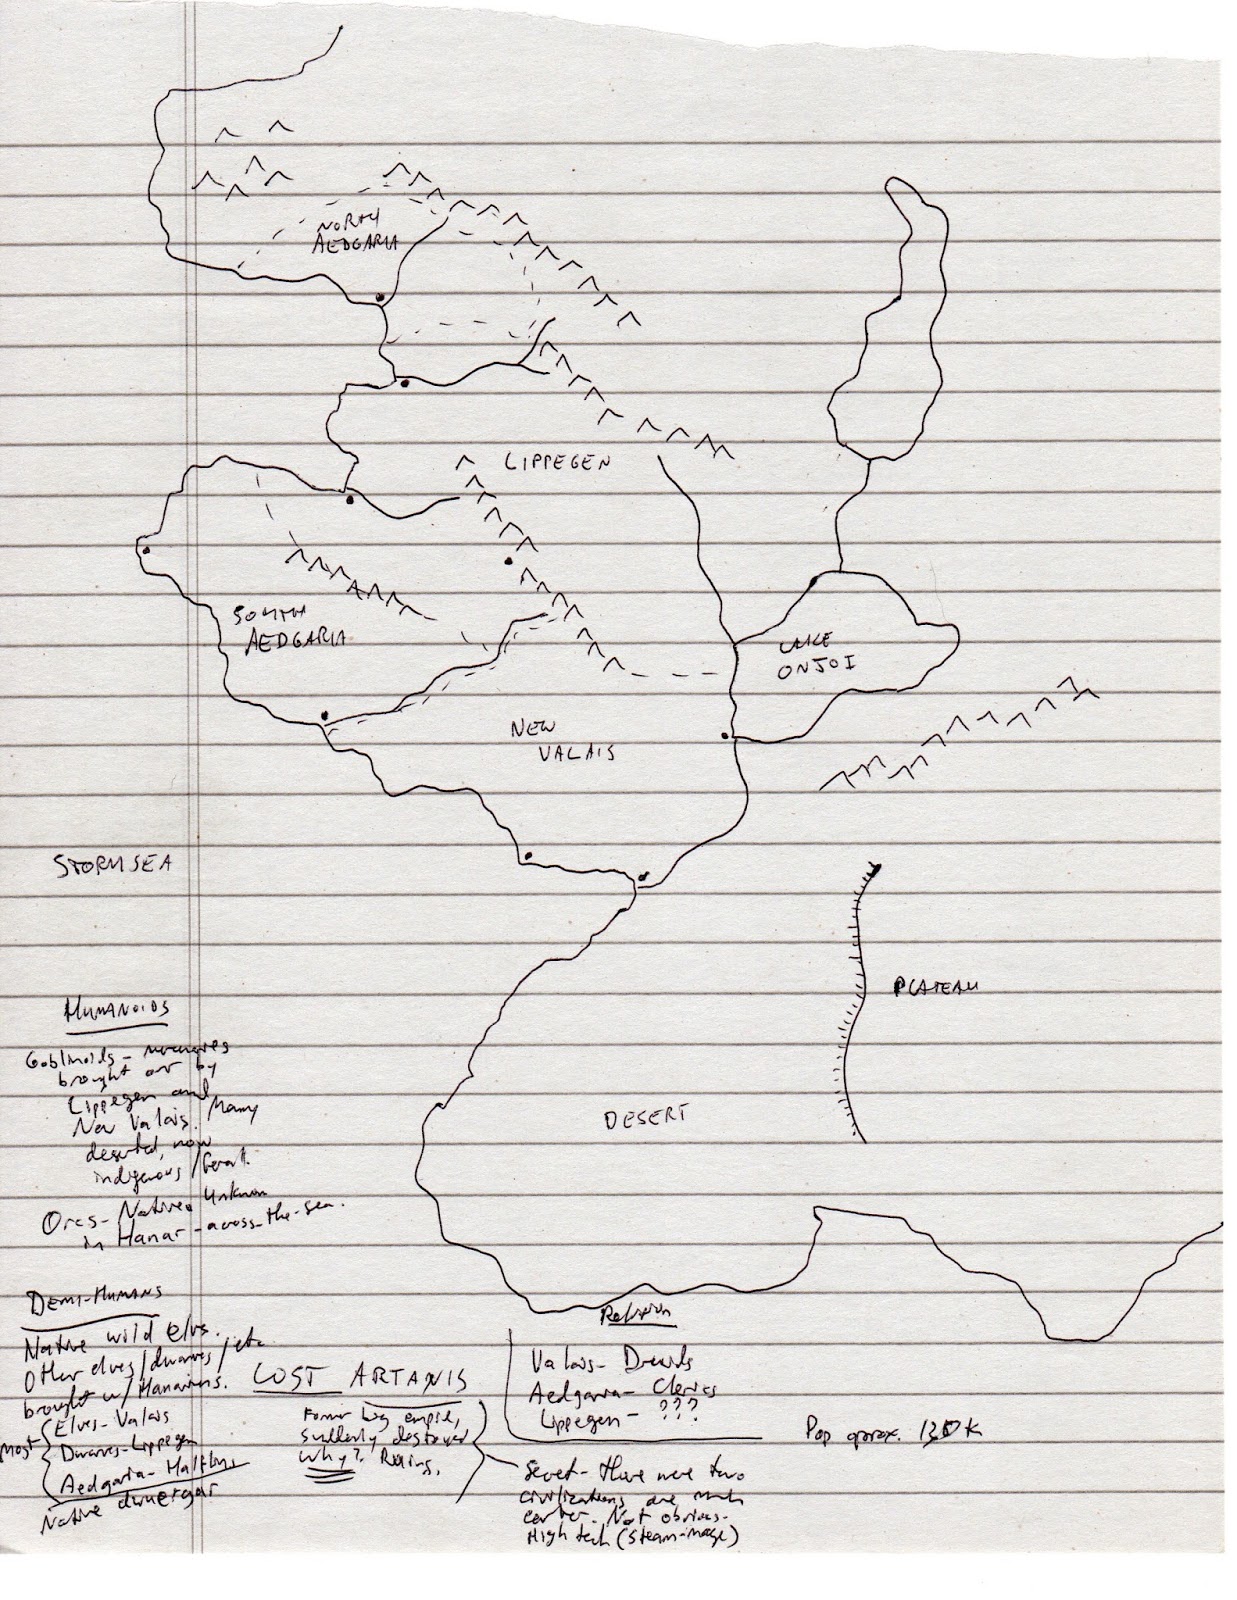 NORTH
AEDGARIA
LIPPEGEN
SOUTH
AEDGARIA
LAKE
ONJOI
NEW
VALAIS
STORMSEA
PLATEAU
DESERT
HUMANOIDS
Goblinoids-
brought over by
Lippegen and
New Valais. Many
deserted, now
indigenous/
Orcs- Native. Unknown
in Hanar-across-the-sea.
DEMI-HUMANS
Native wild elves.
Other elves/dwarves/etc
brought w/ Hanarians.
Most
Elves-Valais
Dwarves-Lippegen
Aedgaria-Halflings
Native duuergar
LOST ARTANIS
Former big empire,
suddenly destroyed
Why?
Religion
Valais- Druids
Aedgaria- Clerics
Lippegen- ???
Secret- there were two
civilizations, one much
Not obvious-
High tech (steam-mage)
Pop approx. 130K